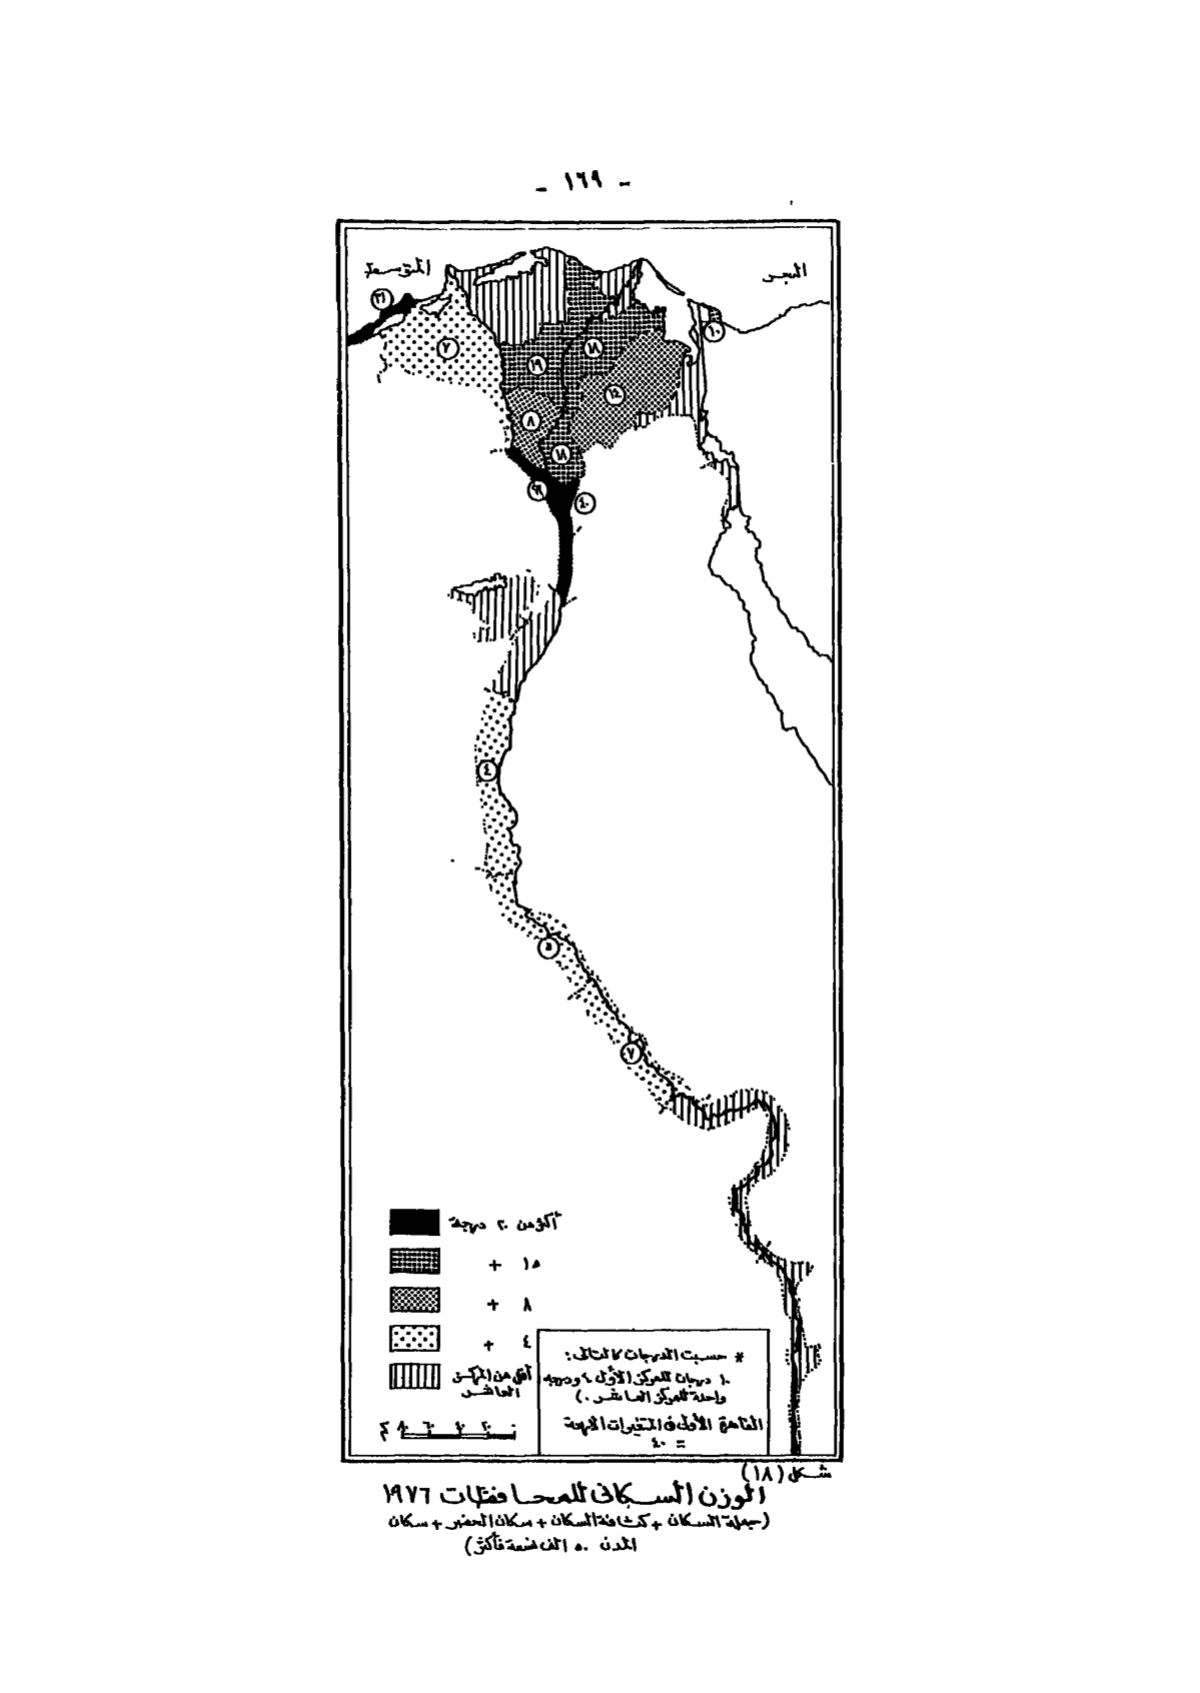 - ١٦٩ -
البحر
المتوسط
١٠
٧
١٩
١٨
١٤
٨
١٨
٤٠
٤
٥
٧
أكثر من ٢٠ درجة
١٥ +
٨ +
٤ +
أقل من المركز
العاشر
* حسبت الدرجات كالتالى :
١٠ درجات للمركز الأول ، ودرجة
واحدة للمركز العاشر .)
القاهرة الأولى فى المتغيرات الأربعة
= ٤٠
٠ ٢٠ ٤٠ ٦٠ ٨٠ كم
شكل (١٨)
الوزن السكانى للمحافظات ١٩٧٦
(جملة السكان + كثافة السكان + سكان الحضر + سكان
المدن ٥٠ الف نسمة فأكثر)